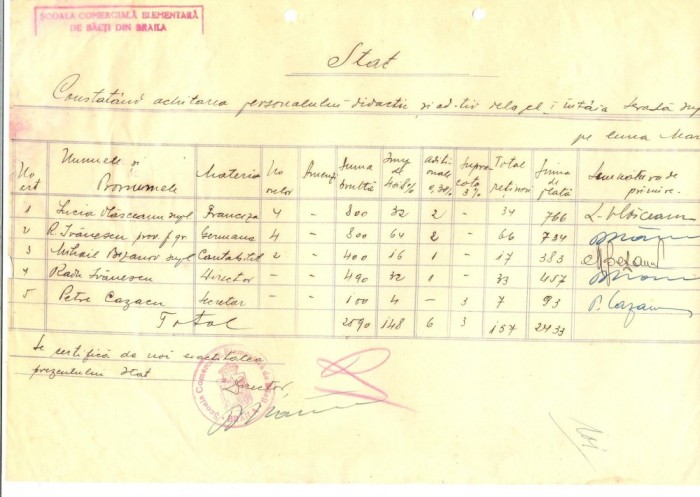 ȘCOALA COMERCIALĂ ELEMENTARĂ
DE BĂEȚI DIN BRAILA
Stat
Constatând achitarea personalului didactic și ad-tiv dela
pe luna
No crt Numele și Pronumele Materia No orelor Amenzi Suma brută Imp de 4 și 8% Aditionale 0,30% Supra cota 3% Total rețineri Suma de plată Semnătura de primire
1 Licia Vlăsceanu supl Franceza 4 - 800 32 2 - 34 766 L. Vlăsceanu
2 R. Ivănescu prov. f. gr Germana 4 - 800 64 2 - 66 734
3 Mihail supl Contabilit 2 - 400 16 1 - 17 383
4 Radu Ivănescu Director - 490 32 1 - 33 457
5 Petre Cazacu Secretar - 100 4 - 3 7 93 P. Cazacu
Total 2590 148 6 3 157 2433
Se certifică de noi exactitatea
prezentului stat
Director,